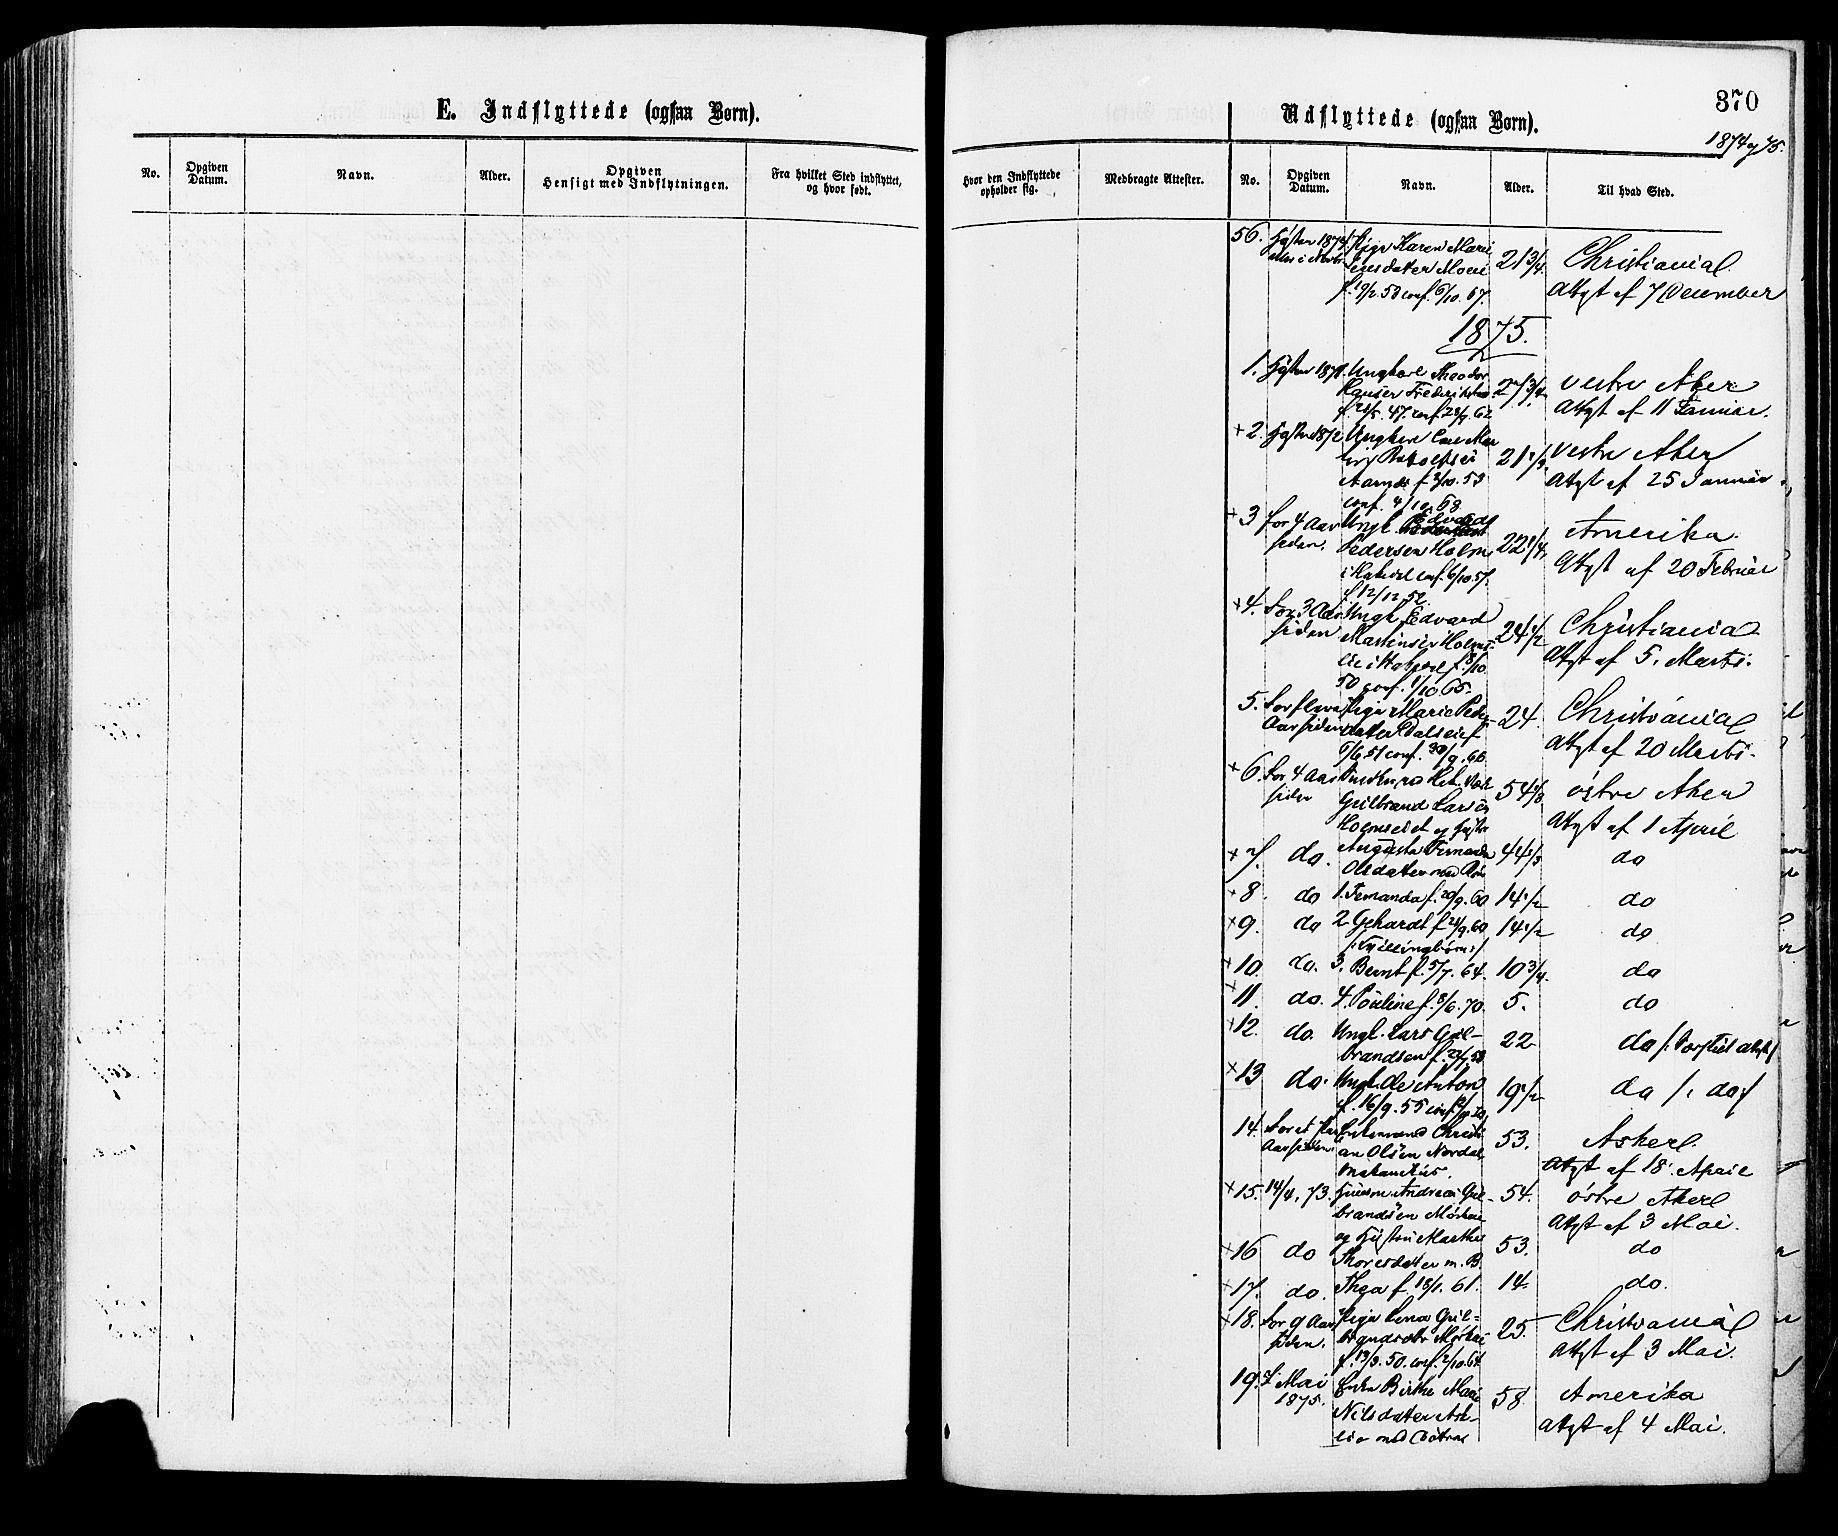 E. Indflyttede (ogsaa Børn).
No.
Opgiven
Datum.
Navn.
Alder.
Opgiven
Hensigt med Indflytningen.
Fra hvilket Sted indflyttet,
og hvor født.
370
Udflyttede (ogsaa Børn).
1874 og 75.
Hvor den Indflyttede
opholder sig.
Medbragte Attester.
No.
Opgiven
Datum.
Navn.
Alder.
Til hvad Sted.
56. Høsten 187 Pige Karen Marie 21 3/4 Christiania
Jensdatter Moen
conf. 6/10. 67. Attgt af 7 December
1875.
1. Høsten 187 Ungkarl Theodor 27 3/4 vestre Aker
Frederiksen
47. conf. 62 Attgt af 11 Januar.
+2. Høsten 1872 Ungkarl Carl 21 1/3 vestre Aker
f 2/10. 53 Attgt af 25 Januar
conf. 4/10. 68
+3 for 4 Aar Ungk. Edvard Amerika
siden. Pedersen Holm 22 1/4
i Hakedal conf. 6/10. 67. Attgt af 20 Februar
f. 12/12 52
+4. for 3 Aar Ungk. Edvard Christiania
siden Martinsen Holms- 24 1/2
lie i Hakedal f. 8/10 Attgt af 5. Marts.
50 conf. 1/10 65.
5. for flere Pige Marie Peders- 24 Christiania
Aar siden datter Dalseie f
6/6 51 conf. 30/9. 66 Attgt af 20 Marts.
+6. for 4 Aar 54 1/3 østre Aker
siden Gulbrand Larsen
Holmseiet og Hustru Attgt af 1 April
+7. do. Augusta Fernanda 44 1/3 do
Olsdatter med Børn
+8. do 1. Fernanda f. 20/9. 60 14 1/2 do
+9. do 2 Gehardt f 21/9. 60 14 1/2 do
/: Tvillingbørn :/
+10. do. 3. Bernt f. 5/7. 64. 10 3/4 do
+11. do. 4. Pouline f. 8/6. 70. 5. do
+12. do. Ungk. Lars Gul- 22 do
brandsen f.
+13 do. Ungk. Ole Anton 19 1/2 do /: do :/
f. 16/9. 55 conf.
14. for et Par Enkemand Christi- 53. Asker
Aar siden an Olsen Nordal
Attgt af 18. April
+15. 14/4, 73. Andreas Gul- 54. østre Aker
brandsen
Attgt af 3 Mai.
+16 do og Hustru Marthe 53. do
Thoresdatter m. B.
+17. do. Thea f 18/1. 61. 14 do.
+18. for 9 Aar Pige Lena Gul- 25 Christiania
siden. brandsdtr
f. 13/3. 50. conf. 2/10. 64 Attgt af 3 Mai.
19. Mai Enke Birthe Marie 58 Amerika
1875. Nilsdatter As-
Attgt af 4 Mai.